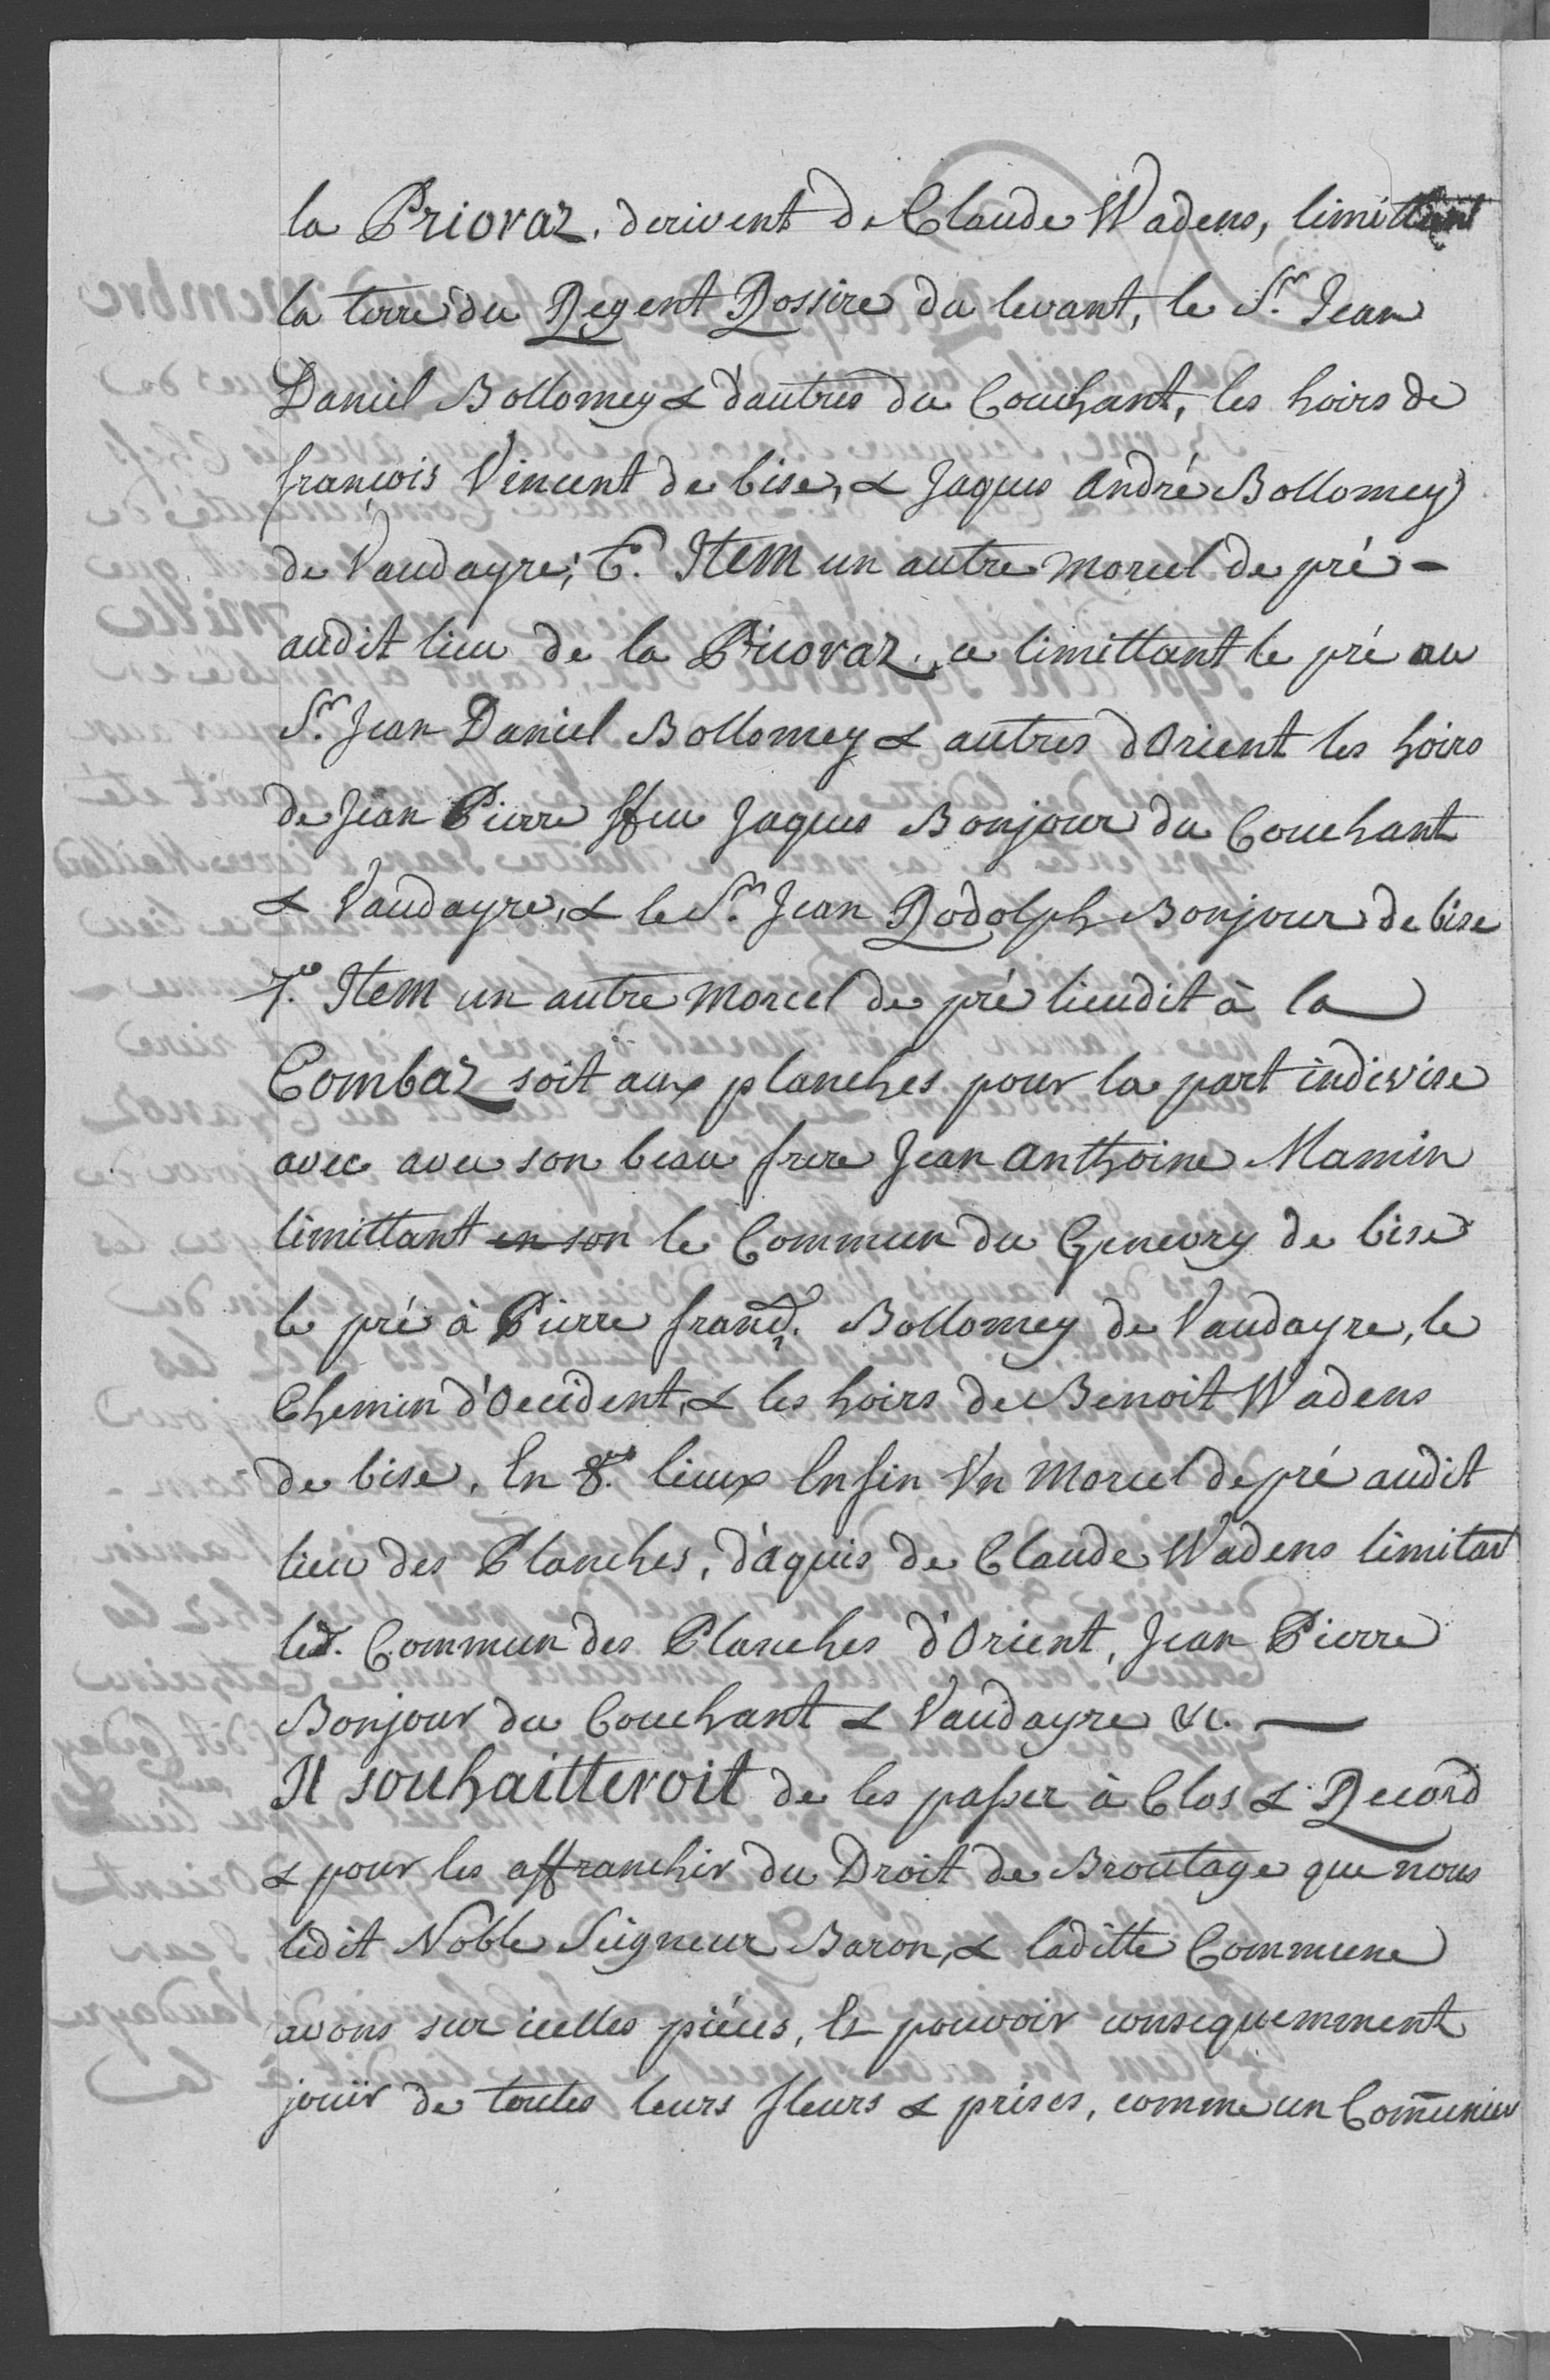 la Priovaz, derivent de Claude Wadens, limittant
la terre du Regent Rossire du levant, le Sr. Jean
Daniel Bollomey & d'autres du Couchant, les hoirs de
françois Vincent de bise, & Jaques André Bollomey
de Vaudayre; 6. Item un autre morcel de pré -
audit lieu de la Priovaz, a limittant le pré au
Sr. Jean Daniel Bollomey & autres d'Orient les hoirs
de Jean Pierre ffeu Jaques Bonjour du Couchant
& Vaudayre, & le Sr. Jean Rodolph Bonjour de bise
7.o Item un autre morcel de pré lieudit à la
Combaz soit aux planches pour la part indivise
avec avec son beau frere Jean Anthoine Mamin
limittant en son le Commun du Genevry de bise
le pré à Pierre franç. Bollomey de Vaudayre, le
Chemin d'Occident, & les hoirs de Benoit Wadens
de bise, En 8.e lieux Enfin Un morcel de pré audit
lieu des Planches, d'aquis de Claude Wadens limitant
led. Commun des Planches d'Orient, Jean Pierre
Bonjour du Couchant & Vaudayre &c. —
Il souhaitteroit de les passer à Clos & Record
& pour les affranchir du Droit de Broutage que nous
ledit Noble Seigneur Baron, & laditte Commune
avons sur icelles piéces, Et pouvoir consequemment
jouïr de toutes leurs fleurs & prises, comme un Com̄unier